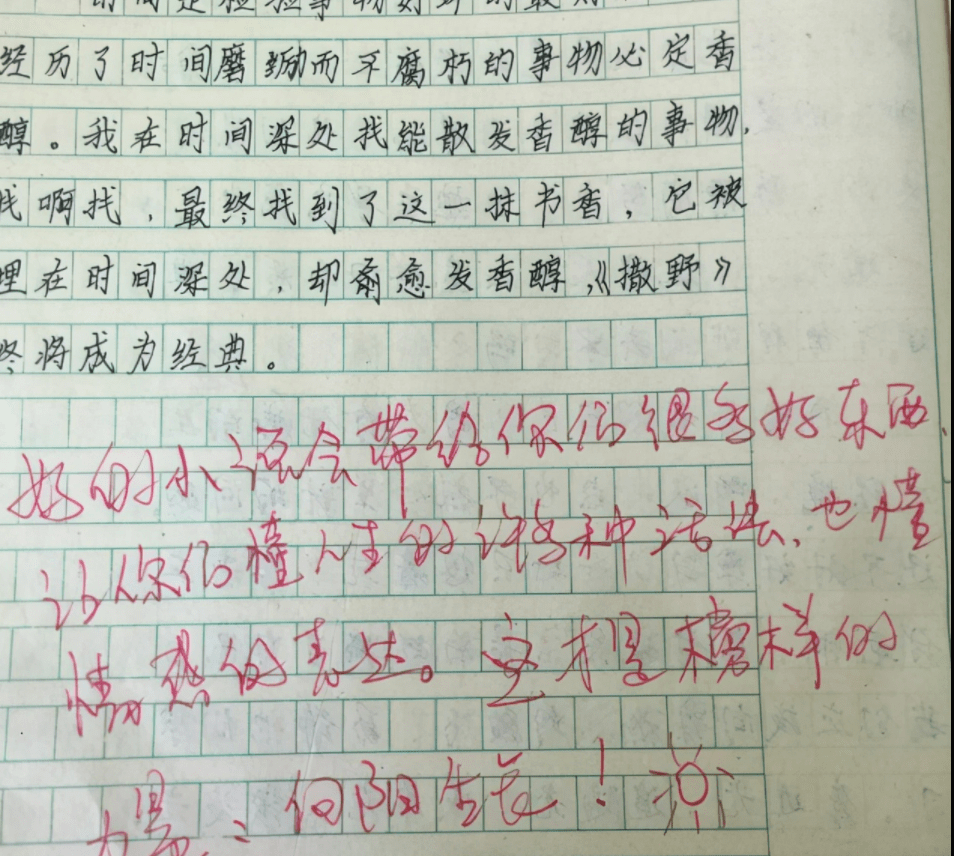 的时间是检验事物好坏的最
经历了时间磨励而不腐朽的事物必定香
醇。我在时间深处找能散发香醇的事物,
找啊找,最终找到了这一抹书香,它被
埋在时间深处,却愈愈发香醇,《撒野》
终将成为经典。
好的小说会带给你们很多好东西、
让你们懂人生的许多种活法、也懂
情感的表达。这才是榜样的
力量:向阳生长!